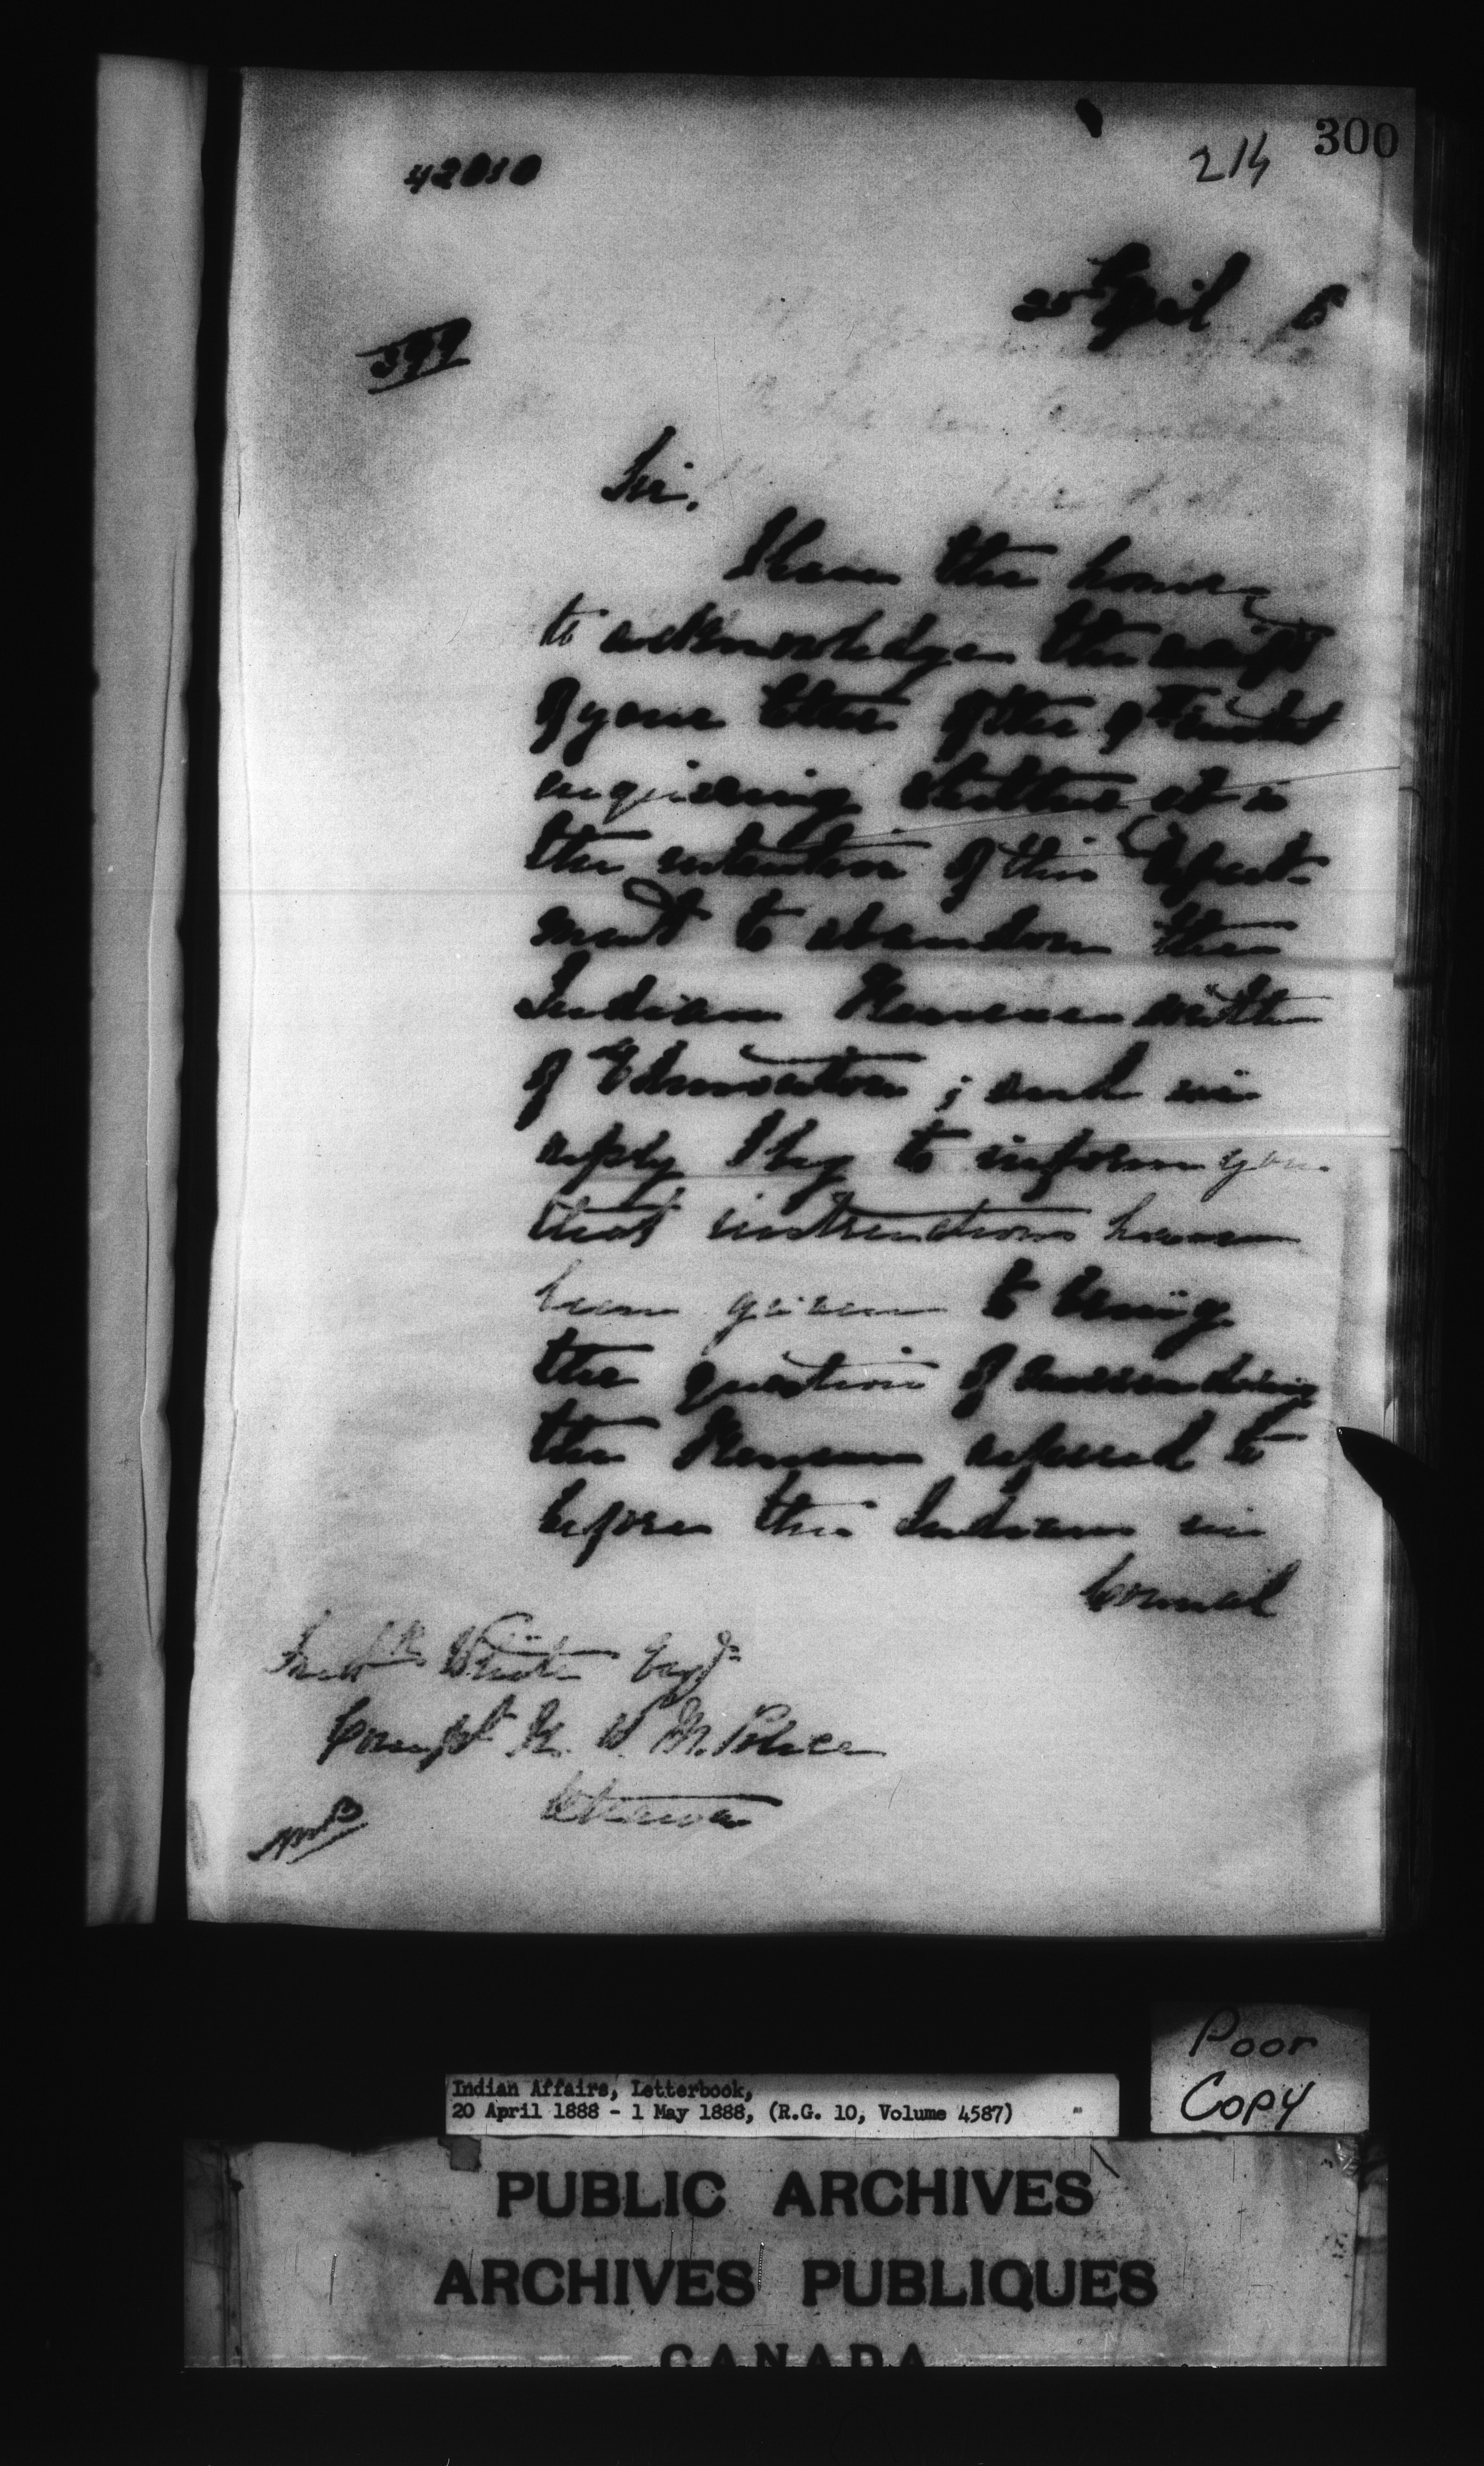 300
214
42010
25 April 8
399
Sir,
I have the honor
to acknowledge the receipt
of your letter of the 9th
enquiring whether it is
the intention of this Depart-
ment to abandon the
Indian Reserve south
of Edmonton; and in
reply I beg to inform you
that instructions have
been given to bring
the question of surrendering
the Reserve referred to
before the Indians in
Council
Fredk White Esqr
Compt N. W. M. Police
Ottawa
Poor
Copy
Indian Affairs, Letterbook,
20 April 1888 - 1 May 1888, (R.G. 10, Volume 4587)
PUBLIC ARCHIVES
ARCHIVES PUBLIQUES
CANADA